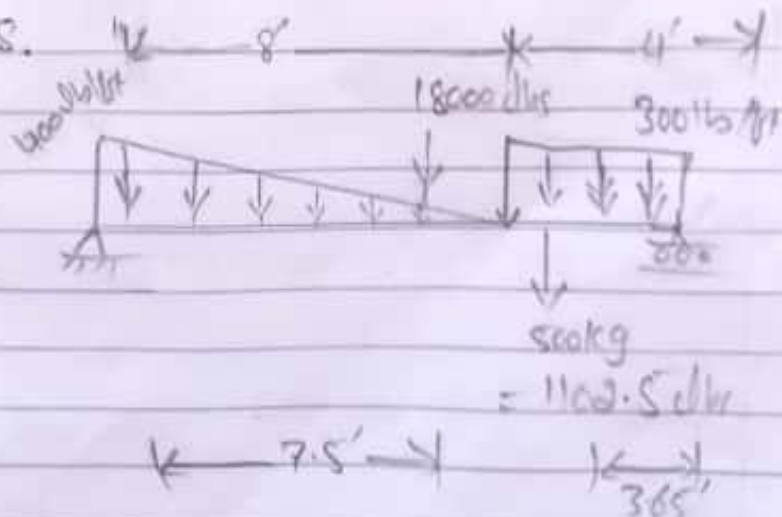 5.
8'
4'
400 lb/ft
18000 lbs
300 lb/ft
500kg
= 1102.5 lbs
7.5'
3.65'